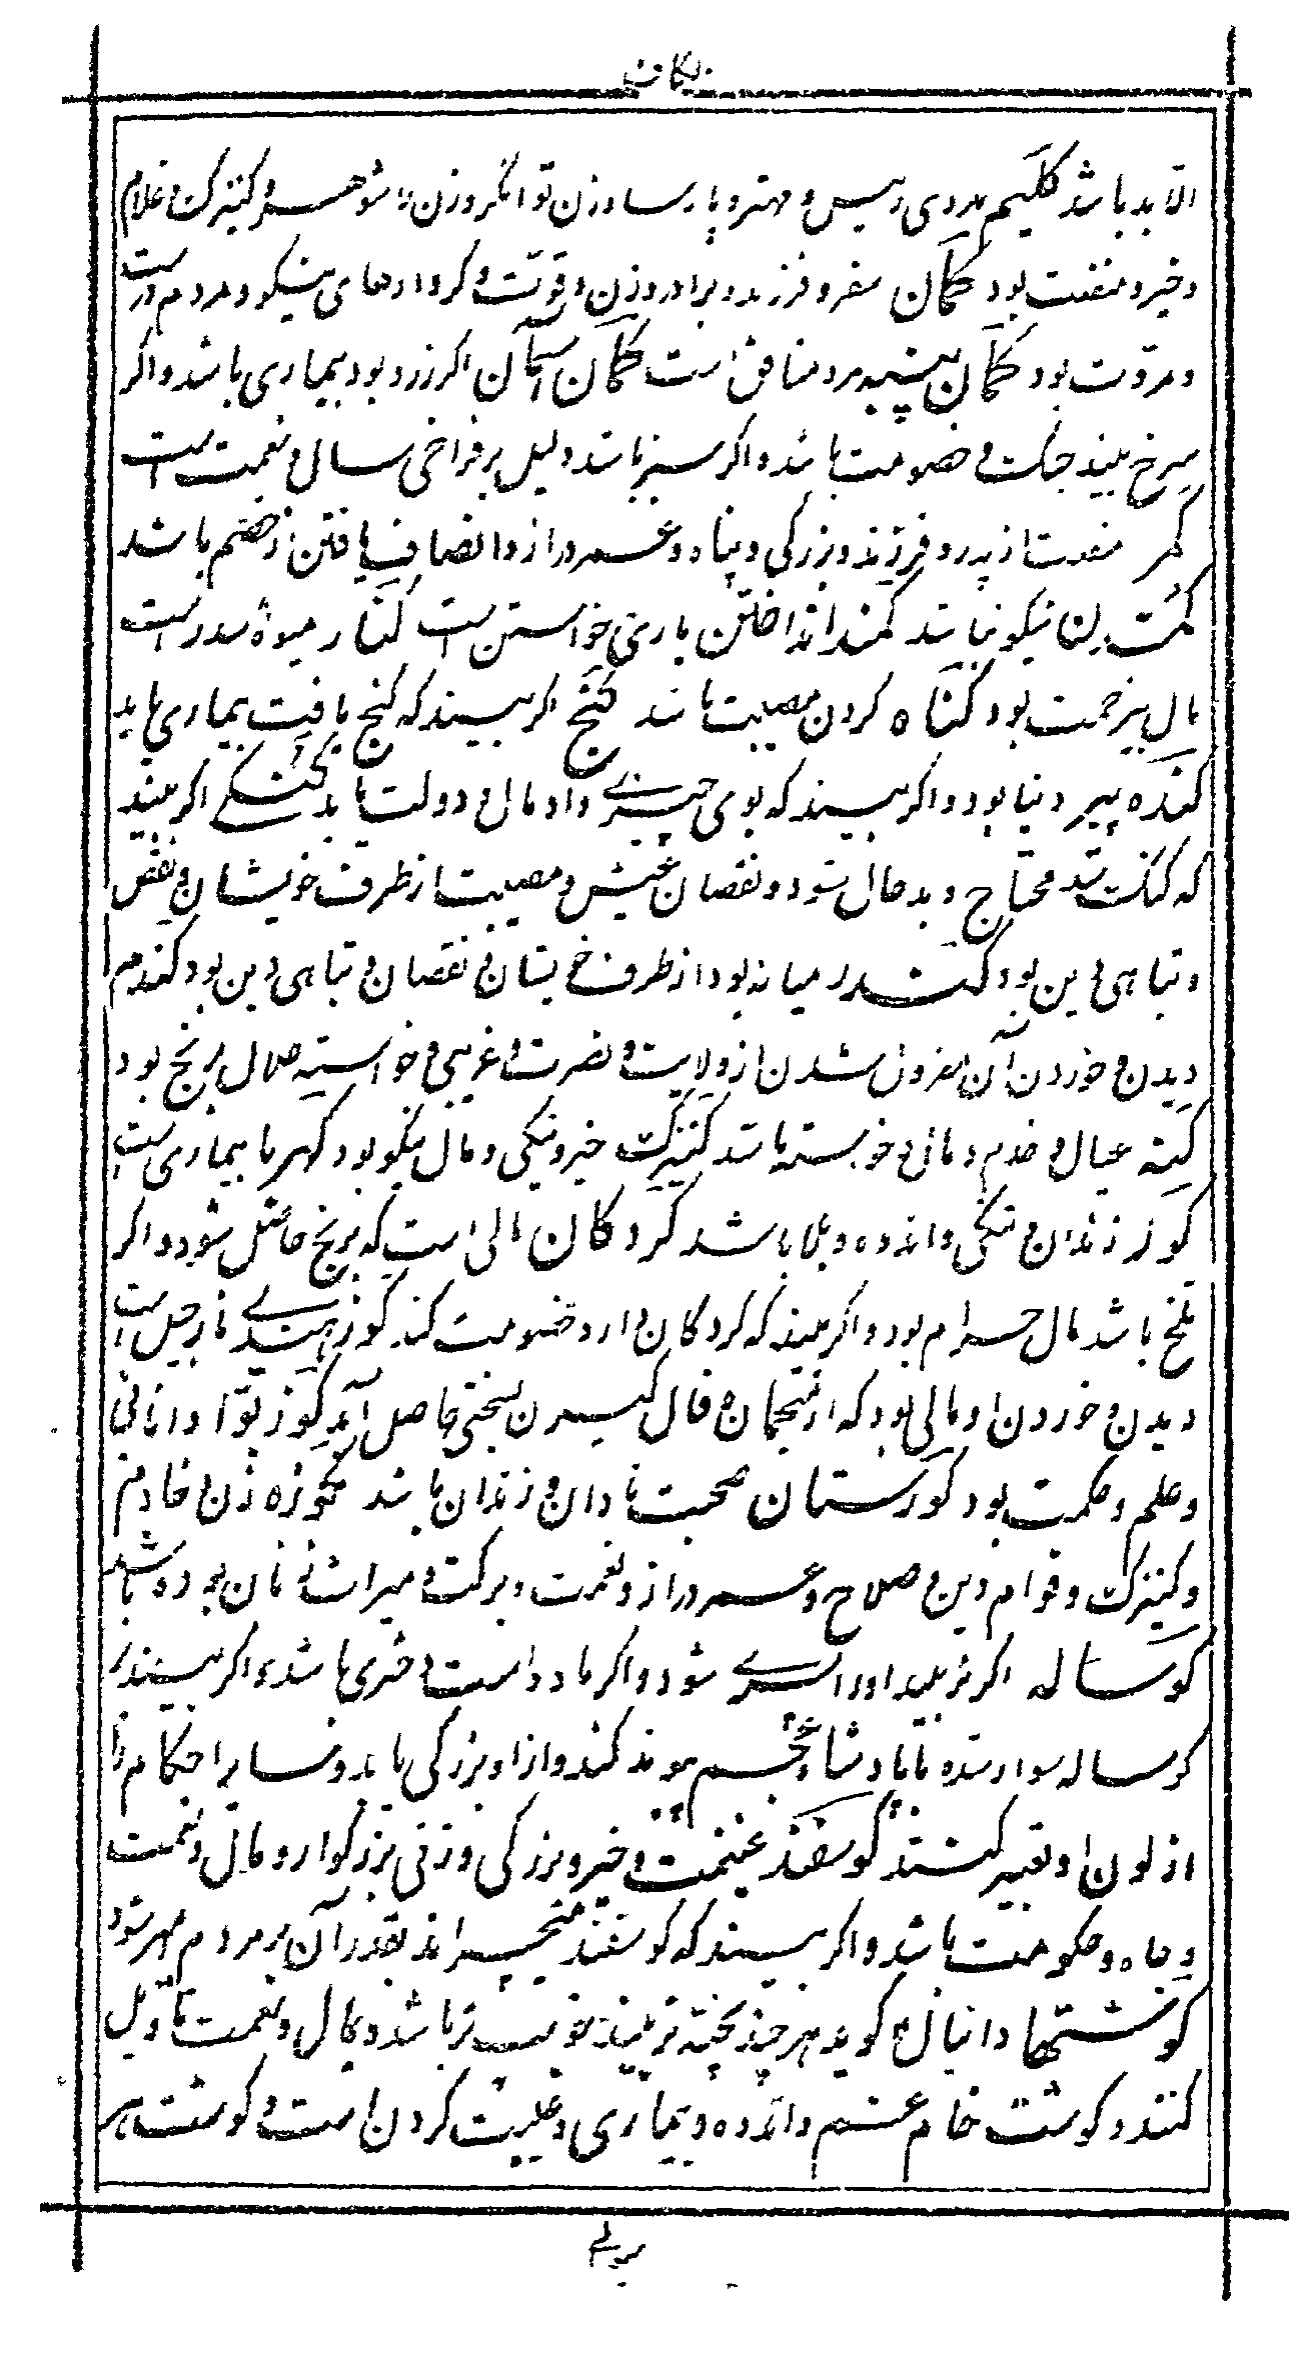 الا بد باشد کلیم مردی رئیس و مهتر و پارسا و زن توانگر و زن با شوهر و کنیزک و غلام
و خیر و منفعت بود کمان سفر و فرزند و برادر و زن و قوّت و کردارهای نیکو و مردم درست
و مروّت بود کمان پنبه مرد منافق است کمان آسمان اکر زرد بود بیماری باشد و اکر
سرخ بیند جنک و خصومت باشد و اکر سبز باشد دلیل بر فراخی سال و نعمت است
کمر منفعت از پدر و فرزند و بزرکی و پناه و عمر دراز و انصاف یافتن از خصم باشد
نیکو نباشد کمند انداختن یاری خواستن است کنار میوهٔ سدر است
مال بیزحمت بود کناه کردن مصیبت باشد کنج اکر بیند که کنج یافت بیماری یابد
کنده پیر دنیا بود و اکر بیند که بوی چیزے داد مال و دولت یابد اکر بیند
که کنک شد محتاج و بد حال شود و نقصان عیش و مصیبت از طرف خویشان و نقص
و تباهی دین بود میانه بود از طرف خویشان و نقصان و تباهی دین بود کندم
دیدن و خوردن آن معزول شدن از ولایت و نصرت و غریبی و خواسته حلال برنج بود
عیال و خادم و خواسته باشد کنیزک خیر و نیکی و مال نیکو بود کهربا بیماری است
کور زندان و تنکی و انده و بلا باشد کردکان مالی است که برنج حاصل شود و اکر
تلخ باشد مال حرام بود و اکر بیند که کردکان دارد خصومت کند کوز هندے نارجیل است
دیدن و خوردن او مالی بود که از منجمان و فال کیرن بسختی حاصل آید کوز بوّا دانائی
و علم و حکمت بود کورستان صحبت نادان و زندان باشد کوزه زن و خادم
و کنیزک و قوام دین و صلاح و عمر دراز و نعمت و برکت و میراث زنان بوده باشد
کوساله اکر نر بیند او را پسرے شود و اکر ماده است دختری باشد و اکر بیند بر
کوساله سوار شده با پادشاه عجم پیوند کند و از او بزرکی یابد و سایر احکام را
از لون او تعبیر کنند کوسفند غنیمت و خیر و بزرکی و زنی بزرکوار و مال و نعمت
و جاه و حکومت باشد و اکر بیند که کوسفند میچراند بقدر آن بر مردم مهتر شود
کوشتها دانیال ع کوید هر چند پخته تر بیند خوب تر باشد و بمال و نعمت تأویل
کنند و کوشت خام غم و انده و بیماری و غیبت کردن است و کوشت